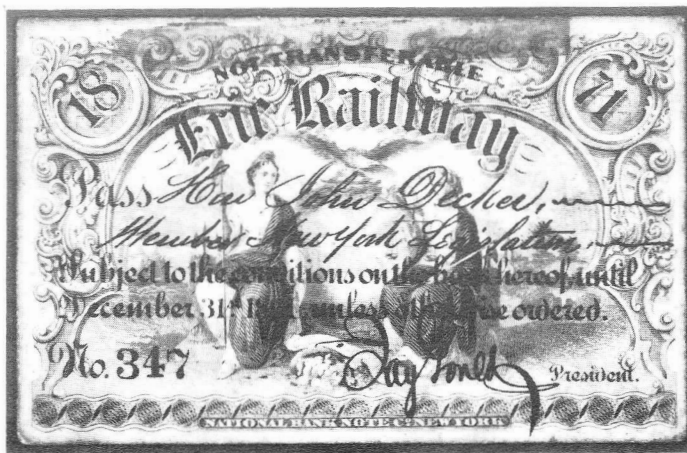 NOT TRANSFERABLE
18 71
Erie Railway
Pass Hon John Decker,
Member New York Legislature,
Subject to the conditions on the back hereof, until
December 31st 1871, unless otherwise ordered.
No. 347 Jay Gould President.
NATIONAL BANK NOTE CO. NEW YORK